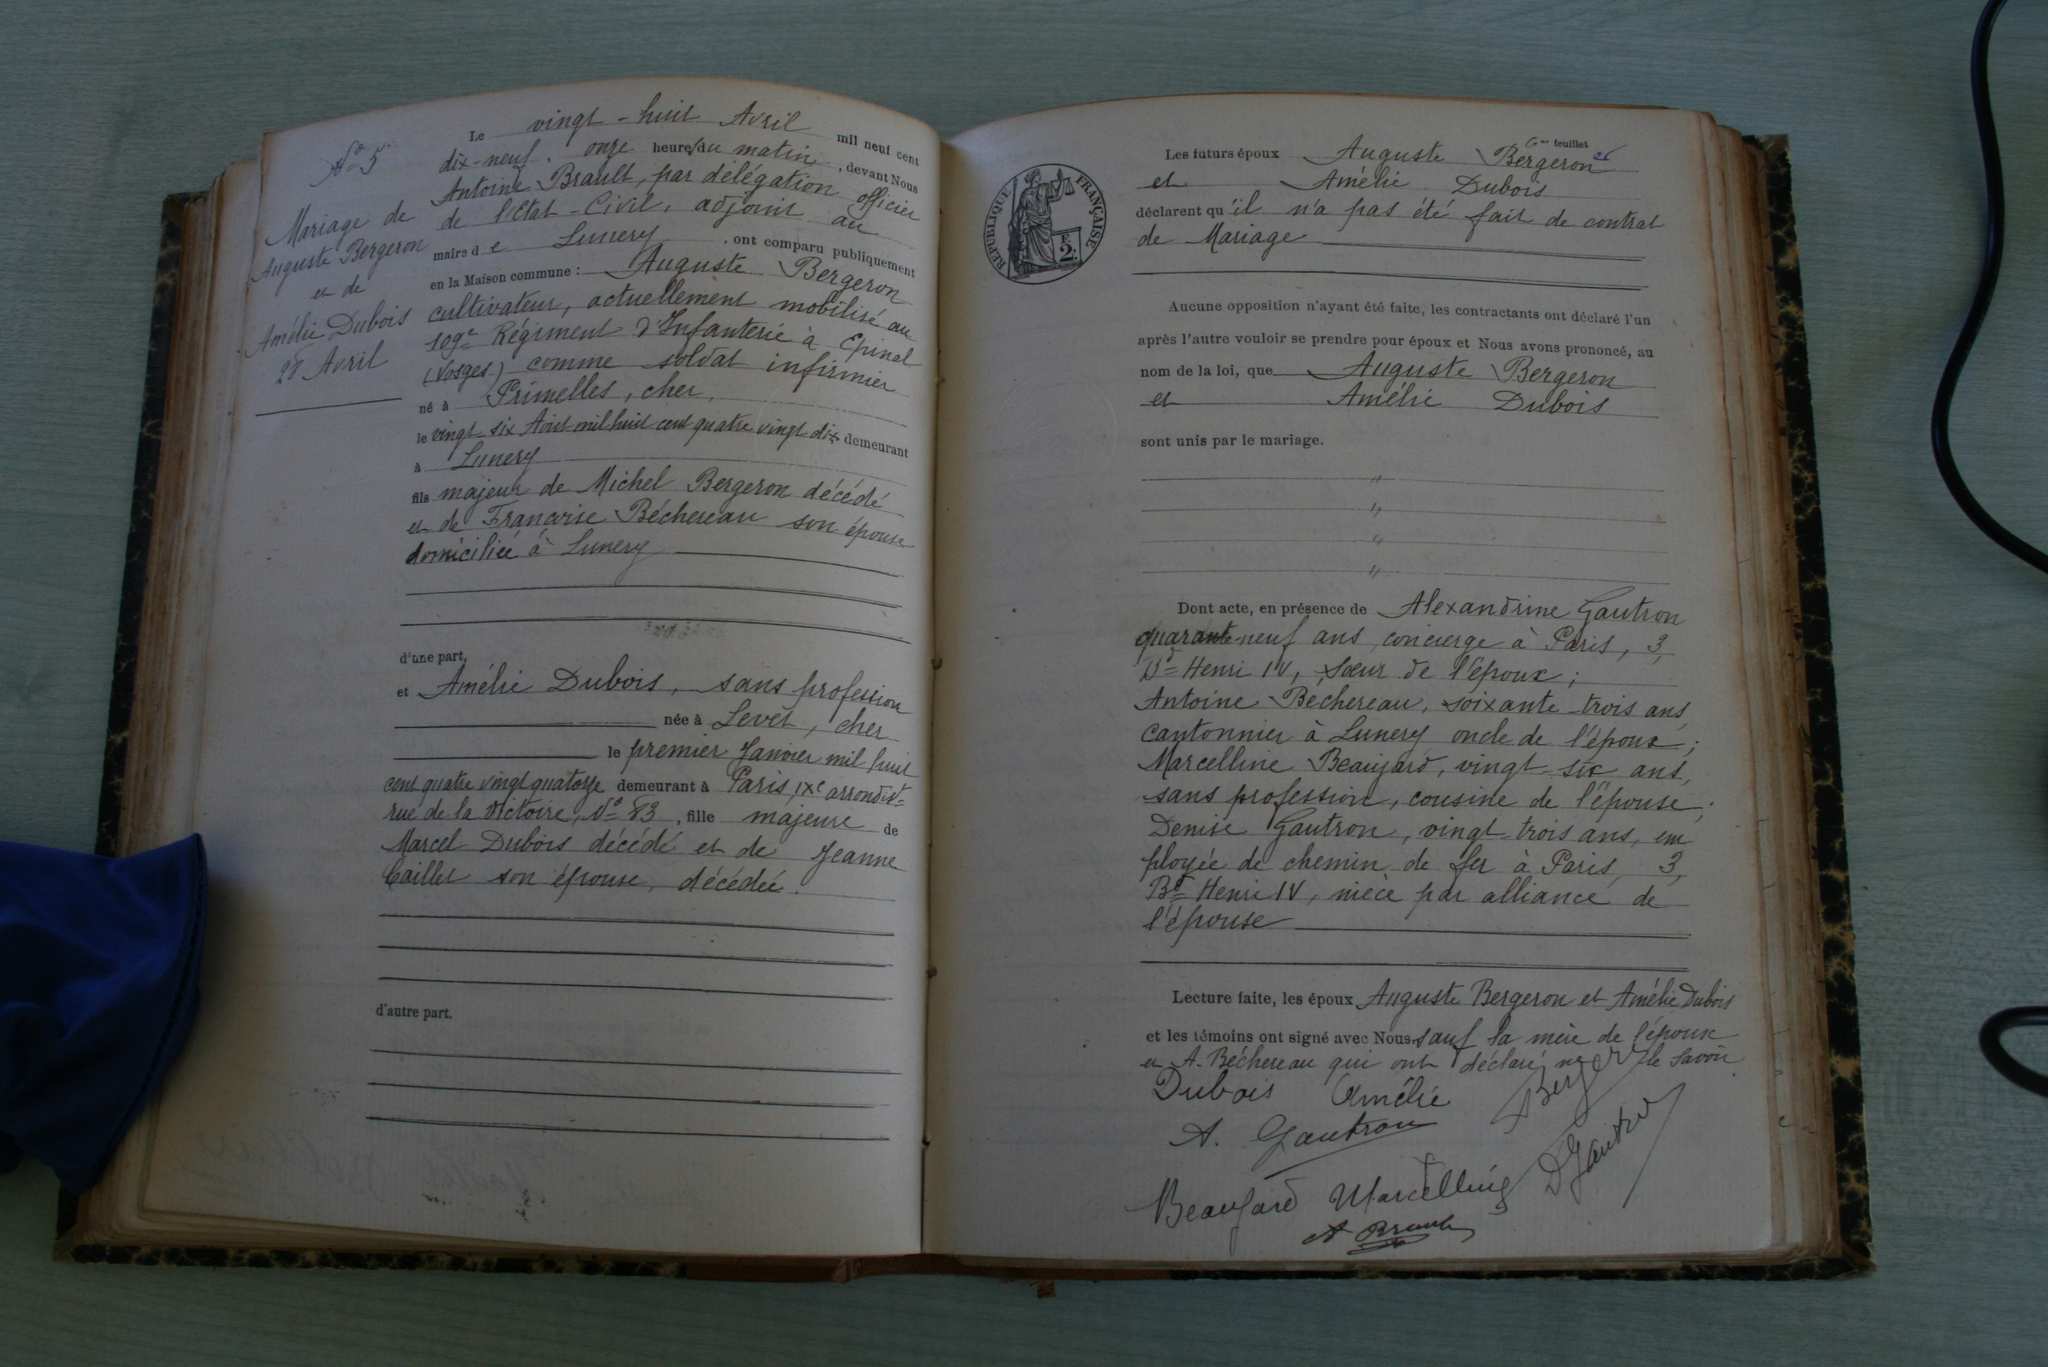 N° 5
Mariage de
Auguste Bergeron
et de
Amélie Dubois
28 Avril
Le vingt-huit Avril mil neuf cent
dix-neuf, onze heures du matin, devant Nous
Antoine Brault, par délégation officier
de l'Etat-Civil, adjoint au
maire de Lunery, ont comparu publiquement
en la Maison commune : Auguste Bergeron
cultivateur, actuellement mobilisé au
109e Régiment d'Infanterie à Epinal
(Vosges) comme soldat infirmier
né à Primelles, cher,
le vingt six Aout mil huit cent quatre vingt dix demeurant
à Lunery
fils majeur de Michel Bergeron décédé
et de Françoise Béchereau son épouse
domiciliée à Lunery
d'une part,
et Amélie Dubois, sans profession
née à Levet, cher
le premier Janvier mil huit
cent quatre vingt quatorze demeurant à Paris, IXe arrondist
rue de la victoire, N° 83, fille majeure de
Marcel Dubois décédé et de Jeanne
Caillet son épouse, décédée.
d'autre part.
feuillet
Les futurs époux Auguste Bergeron
et Amélie Dubois
déclarent qu'il n'a pas été fait de contrat
de Mariage
RÉPUBLIQUE FRANÇAISE
2
Aucune opposition n'ayant été faite, les contractants ont déclaré l'un
après l'autre vouloir se prendre pour époux et Nous avons prononcé, au
nom de la loi, que Auguste Bergeron
et Amélie Dubois
sont unis par le mariage.
"
"
"
"
Dont acte, en présence de Alexandrine Gautron
quarante-neuf ans, concierge à Paris, 3,
Bd Henri IV, Sœur de l'époux ;
Antoine Béchereau, soixante-trois ans,
cantonnier à Lunery oncle de l'époux ;
Marcelline Beaujard, vingt-six ans,
sans profession, cousine de l'épouse ;
Denise Gautron, vingt-trois ans, em
ployée de chemin de fer à Paris, 3,
Bd Henri IV, niece par alliance de
l'épouse
Lecture faite, les époux Auguste Bergeron et Amélie Dubois
et les témoins ont signé avec Nous sauf la mère de l'époux
et A. Béchereau qui ont déclaré ne le savoir
Dubois Amélie Bergeron
A. Gautron D Gautron
Beaujard Marcelline
A Brault